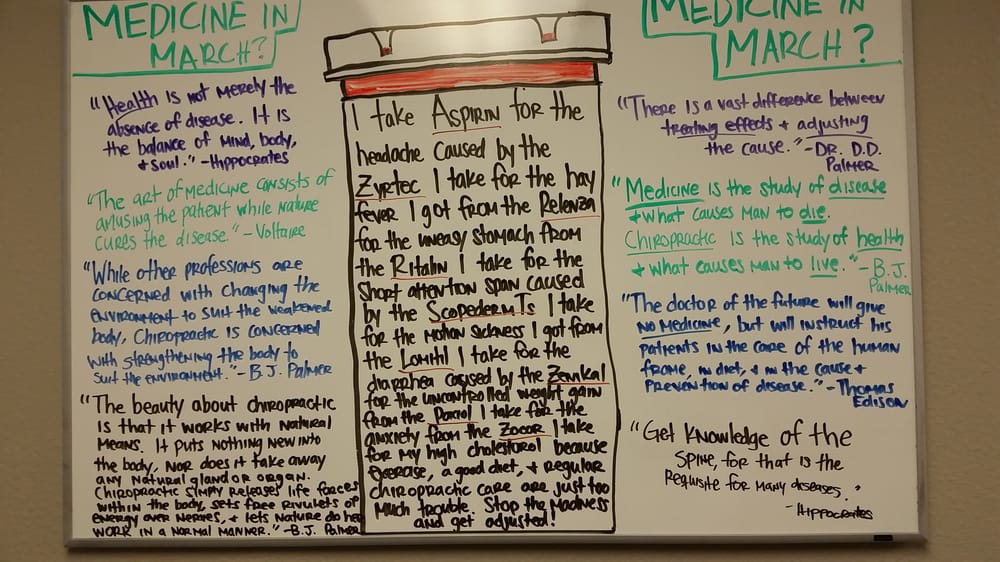 MEDICINE IN
MARCH?
"Health is not merely the
absence of disease. It is
the balance of mind, body,
+ soul." -Hippocrates
"The art of medicine consists of
amusing the patient while nature
cures the disease." - Voltaire
"While other professions are
concerned with changing the
environment to suit the weakened
body, Chiropractic is concerned
with strengthening the body to
suit the environment." - B.J. Palmer
"The beauty about chiropractic
is that it works with natural
means. It puts nothing new into
the body, nor does it take away
any natural gland or organ.
Chiropractic simply releases life forces
within the body, sets free rivulets of
energy over nerves, + lets nature do her
work in a normal manner." - B.J. Palmer
I take Aspirin for the
headache caused by the
Zyrtec I take for the hay
fever I got from the Relenza
for the uneasy stomach from
the Ritalin I take for the
short attention span caused
by the Scopederm Ts I take
for the motion sickness I got from
the Lomitil I take for the
diarrhea caused by the Zenikal
for the uncontrolled weight gain
from the Paxiol I take for the
anxiety from the Zocor I take
for my high cholesterol because
exercise, a good diet, + regular
chiropractic care are just too
much trouble. Stop the madness
and get adjusted!
MEDICINE IN
MARCH?
"There is a vast difference between
treating effects + adjusting
the cause." - Dr. D.D.
Palmer
"Medicine is the study of disease
+ what causes man to die.
Chiropractic is the study of health
+ what causes man to live." - B.J.
Palmer
"The doctor of the future will give
no medicine, but will instruct his
patients in the care of the human
frame, in diet, + in the cause +
prevention of disease." - Thomas
Edison
"Get knowledge of the
spine, for that is the
requisite for many diseases."
- Hippocrates